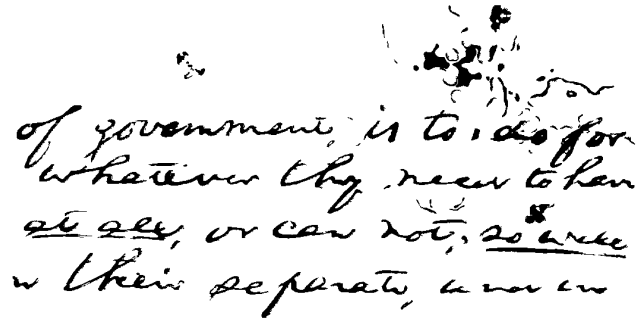 of government, is to do for
whatever they need to hav
at all, or can not, so well
n their separate, and in